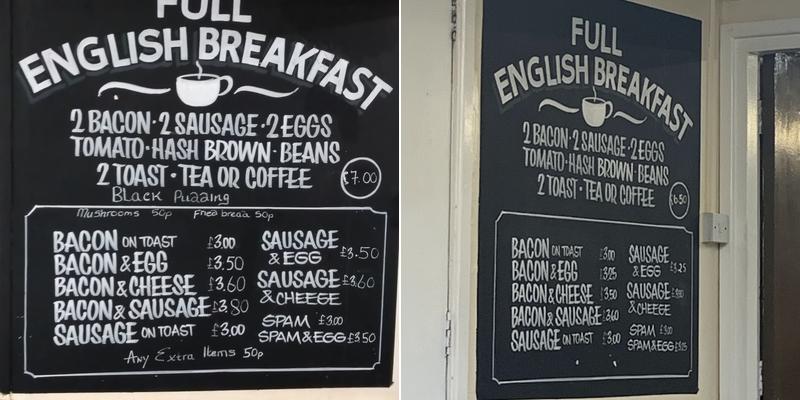 FULL
ENGLISH BREAKFAST
2 BACON · 2 SAUSAGE · 2 EGGS
TOMATO · HASH BROWN · BEANS
2 TOAST · TEA OR COFFEE
£7.00
Black Pudding
Mushrooms 50p Fried bread 50p
BACON ON TOAST £3.00
BACON & EGG £3.50
BACON & CHEESE £3.60
BACON & SAUSAGE £3.80
SAUSAGE ON TOAST £3.00
SAUSAGE
& EGG £3.50
SAUSAGE £3.60
& CHEEGE
SPAM £3.00
SPAM & EGG £3.50
Any Extra Items 50p
FULL
ENGLISH BREAKFAST
2 BACON · 2 SAUSAGE · 2 EGGS
TOMATO · HASH BROWN · BEANS
2 TOAST · TEA OR COFFEE
£6.50
BACON ON TOAST £3.00
BACON & EGG £3.25
BACON & CHEESE £3.50
BACON & SAUSAGE £3.60
SAUSAGE ON TOAST £3.00
SAUSAGE
& EGG £3.25
SAUSAGE
& CHEEGE
SPAM £3.00
SPAM & EGG